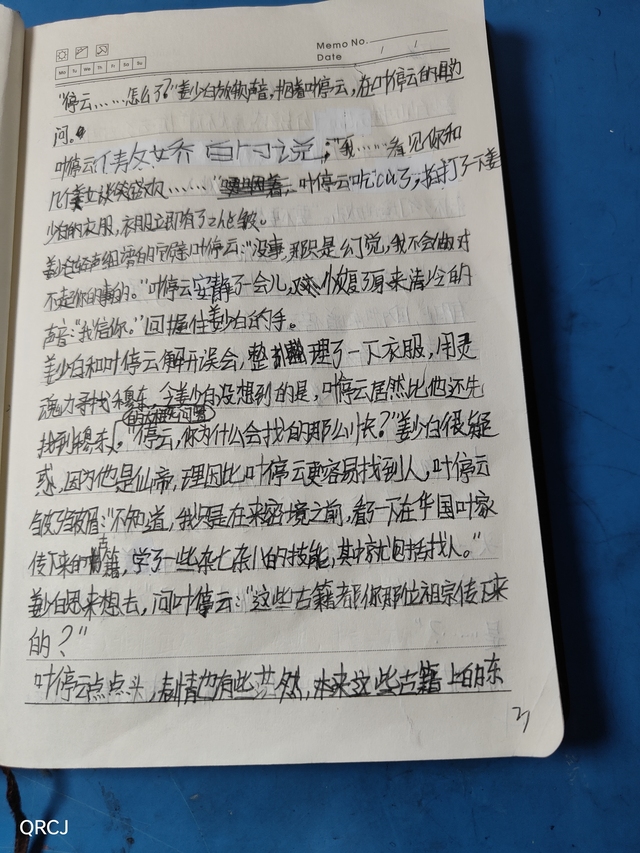 Memo No.
Date / /
Mo Tu We Th Fr Sa Su
"停云……怎么了?"姜少白放软声音,抱着叶停云,在叶停云的耳边
问。
叶停云 说;我……看见你和
几个美女谈笑 ……"叶停云吃 了,拍打了下姜
少白的衣服,衣服立即有了
姜少白轻声细语的 叶停云:"没事,那只是幻觉,我不会做对
不起你的事的。"叶停云安静了一会儿,恢复了原来清冷的
声音:"我信你。"回握住姜少白的手。
姜少白和叶停云解开误会,整理了一下衣服,用灵
魂力寻找穆东,令姜少白没想到的是,叶停云居然比他还先
找到穆东
"停云,你为什么会找的那么快?"姜少白很疑
惑,因为他是仙帝,理因比叶停云更容易找到人,叶停云
皱了皱眉:"不知道,我只是在来密境之前,看了一下在华国叶家
传下来的古籍,学了一些杂七杂八的技能,其中就包括找人。"
姜少白思来想去,问叶停云:"这些古籍都你那位祖宗传下来
的?"
叶停云点点头,表情也有些茫然,本来这些古籍上的东
QRCJ